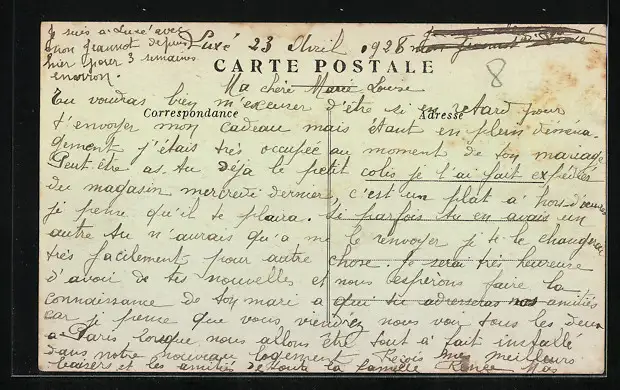 Je suis à Luxé avec
mon Jeannot depuis
hier pour 3 semaines
environ.
Luxé 23 Avril 1928
8
CARTE POSTALE
Ma chère Marie Louise
Tu voudras bien m'excuser d'être si en retard pour
Correspondance
Adresse
t'envoyer mon cadeau mais étant en plein déména-
gement j'étais très occupée au moment de ton mariage
Peut-être as-tu déjà le petit colis je l'ai fait expédier
du magasin mercredi dernier, c'est un plat à hors d'œuvres
je pense qu'il te plaira. Si parfois tu en avais un
autre tu n'aurais qu'à me le renvoyer je te le changerai
très facilement pour autre chose. Je serai très heureuse
d'avoir de tes nouvelles et nous espérons faire la
connaissance de ton mari à qui tu adresseras nos amitiés
car je pense que vous viendrez nous voir tous les deux
à Paris lorsque nous allons être tout à fait installé
dans notre nouveau logement. Reçois mes meilleurs
baisers et les amitiés de toute la famille Renée